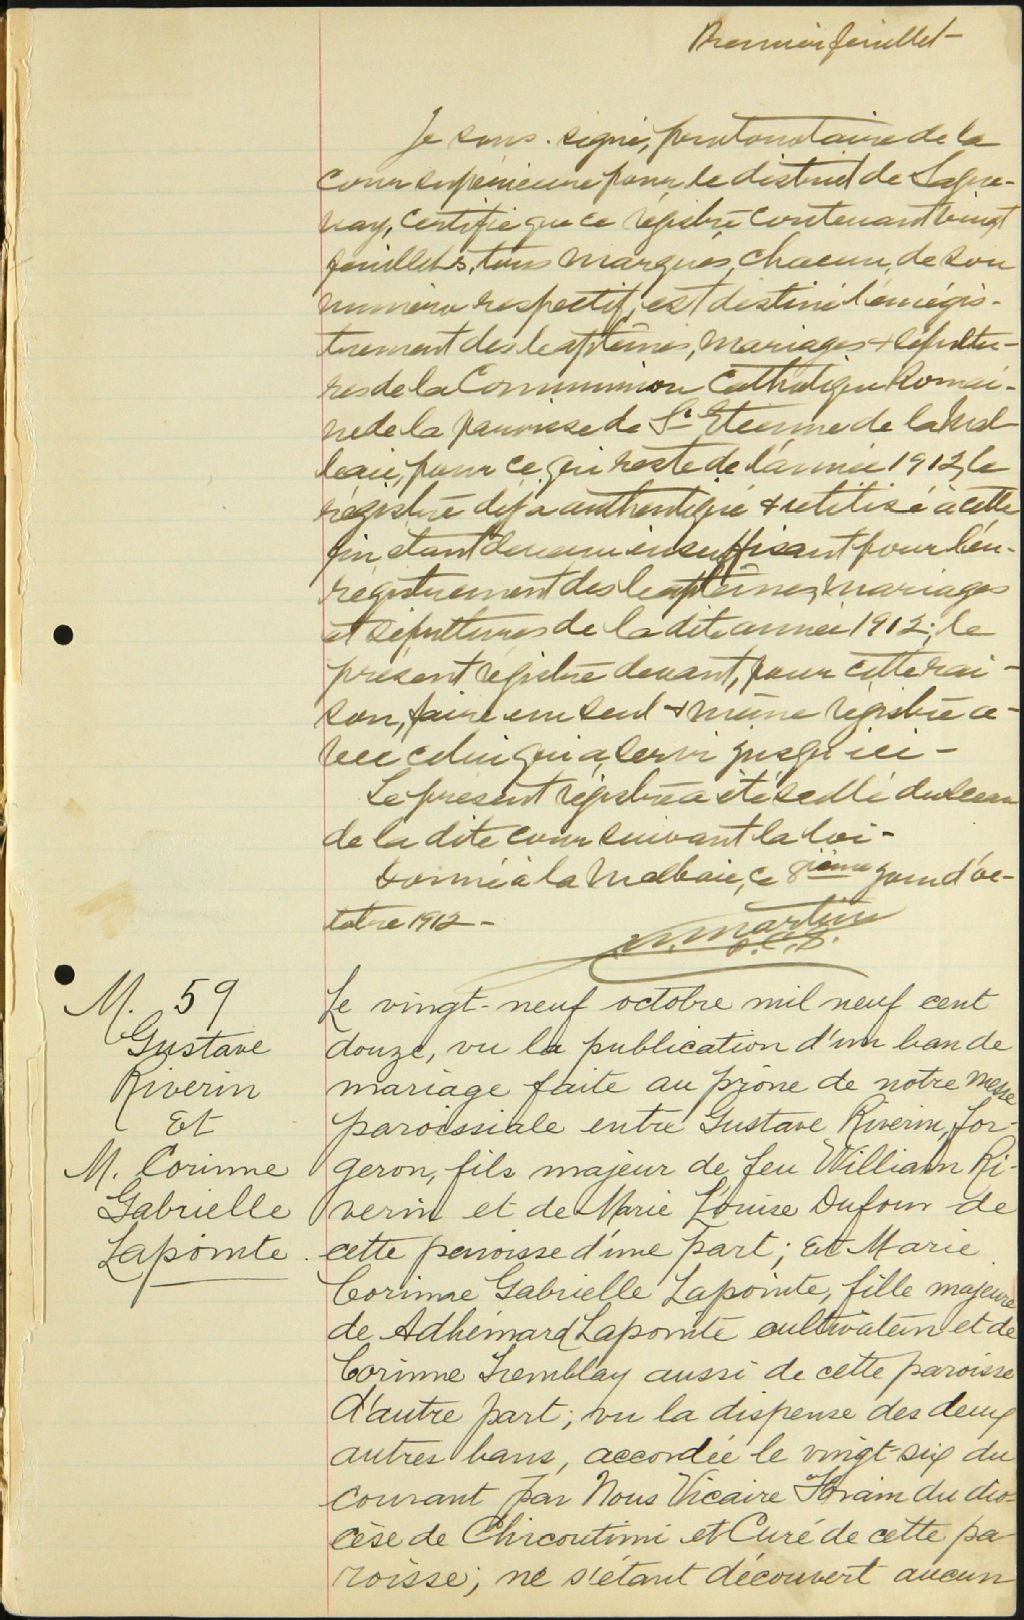 Premier feuillet -
Je sous-signé, protonotaire de la
cour supérieure pour le district de Sague-
nay, certifie que ce régistre contenant vingt
feuillets, tous marqués, chacun, de son
numéro respectif, est destiné à l'enrégis-
trement des baptêmes, mariages & sépultu-
res de la Communion Catholique Romai-
ne de la paroisse de St Etienne de la Mal-
baie, pour ce qui reste de l'année 1912, le
régistre déjà authentiqué & utilisé à cette
fin étant devenu insuffisant pour l'en-
registrement des baptêmes, mariages
et sépultures de la dite année 1912; le
présent régistre devant, pour cette rai-
son, faire un seul & même régistre a-
vec celui qui a servi jusqu'ici -
Le présent régistre a été scellé du sceau
de la dite cour suivant la loi -
Donné à la Malbaie, ce 8ième jour d'oc-
tobre 1912 -
Martin
P.C.S.
M. 59
Gustave
Riverin
Et
M. Corinne
Gabrielle
Lapointe
Le vingt-neuf octobre mil neuf cent
douze, vu la publication d'un ban de
mariage faite au prône de notre messe
paroissiale entre Gustave Riverin, for-
geron, fils majeur de feu William Ri-
verin et de Marie Louise Dufour de
cette paroisse d'une part; et Marie
Corinne Gabrielle Lapointe, fille majeure
de Adhémard Lapointe cultivateur et de
Corinne Tremblay aussi de cette paroisse
d'autre part; vu la dispense des deux
autres bans, accordée le vingt-six du
courant par Nous Vicaire Forain du dio-
cèse de Chicoutimi et Curé de cette pa-
roisse; ne s'étant découvert aucun